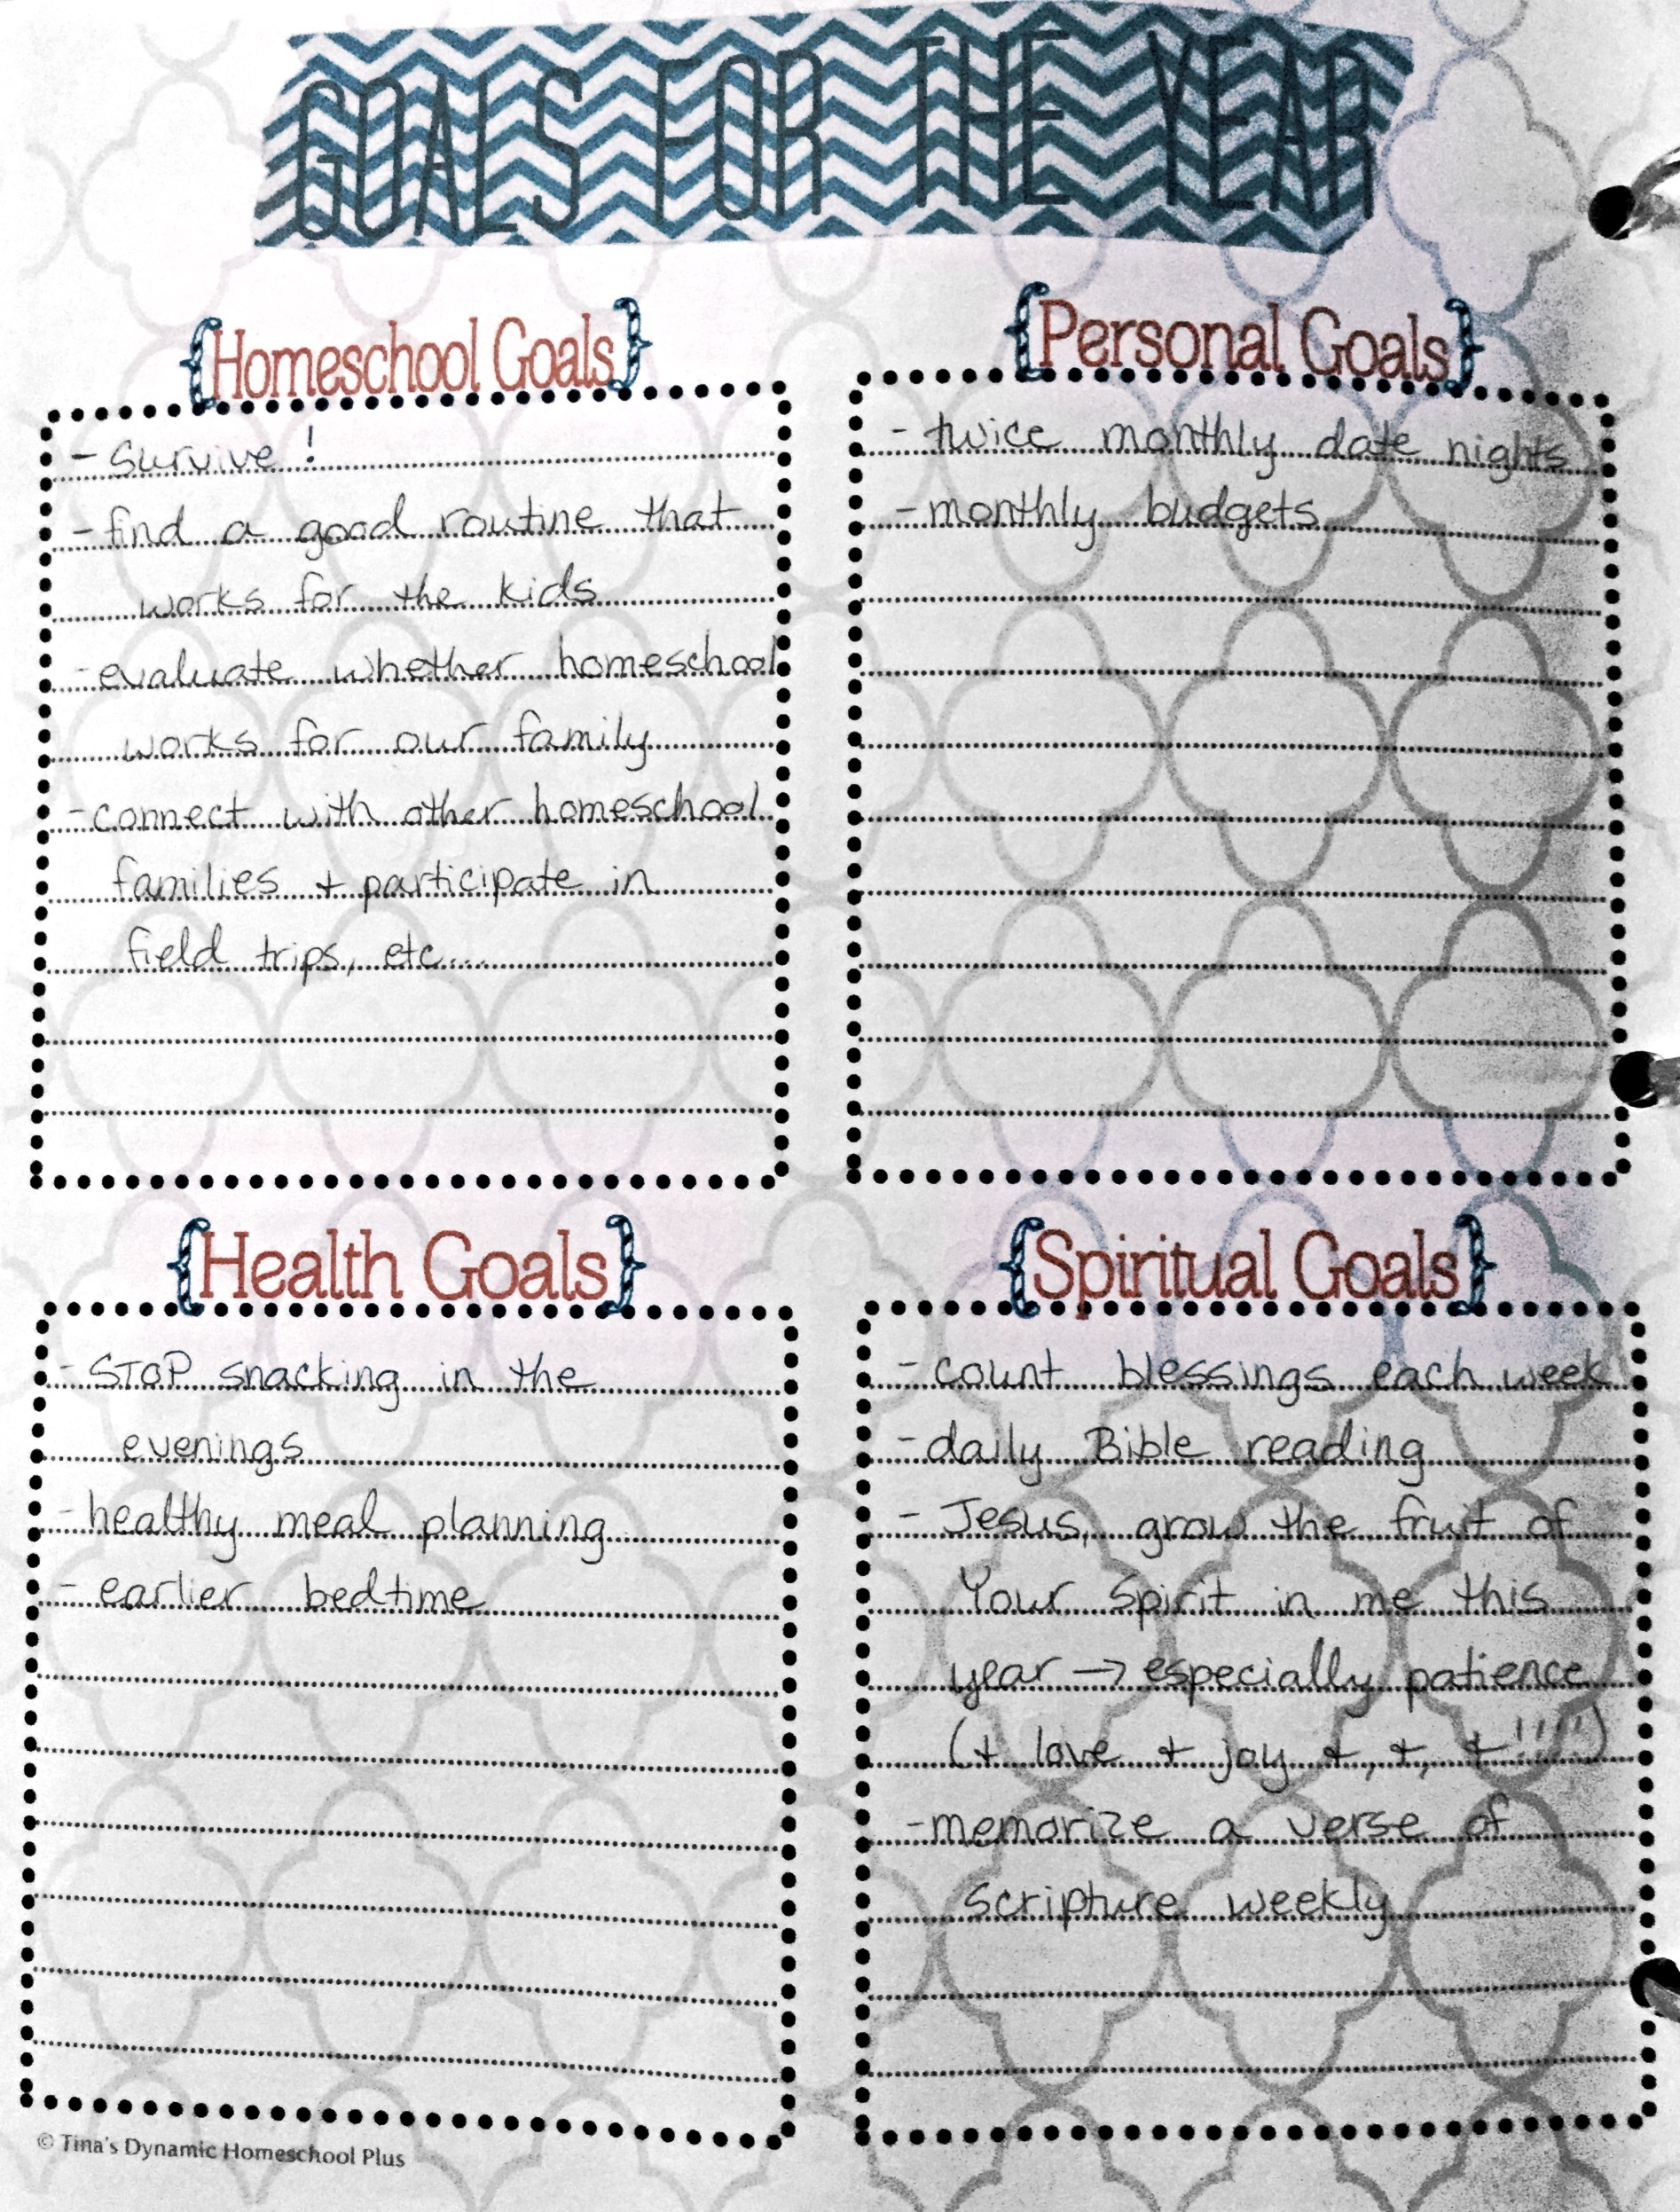 GOALS FOR THE YEAR
{Homeschool Goals}
- Survive!
- find a good routine that
works for the kids
- evaluate whether homeschool
works for our family
- connect with other homeschool
families + participate in
field trips, etc...
{Personal Goals}
- twice monthly date nights
- monthly budgets
{Health Goals}
- STOP snacking in the
evenings
- healthy meal planning
- earlier bedtime
{Spiritual Goals}
- count blessings each week
- daily Bible reading
- Jesus, grow the fruit of
Your Spirit in me this
year → especially patience
(+ love + joy +, +, +!!!!!)
- memorize a verse of
Scripture weekly
© Tina's Dynamic Homeschool Plus